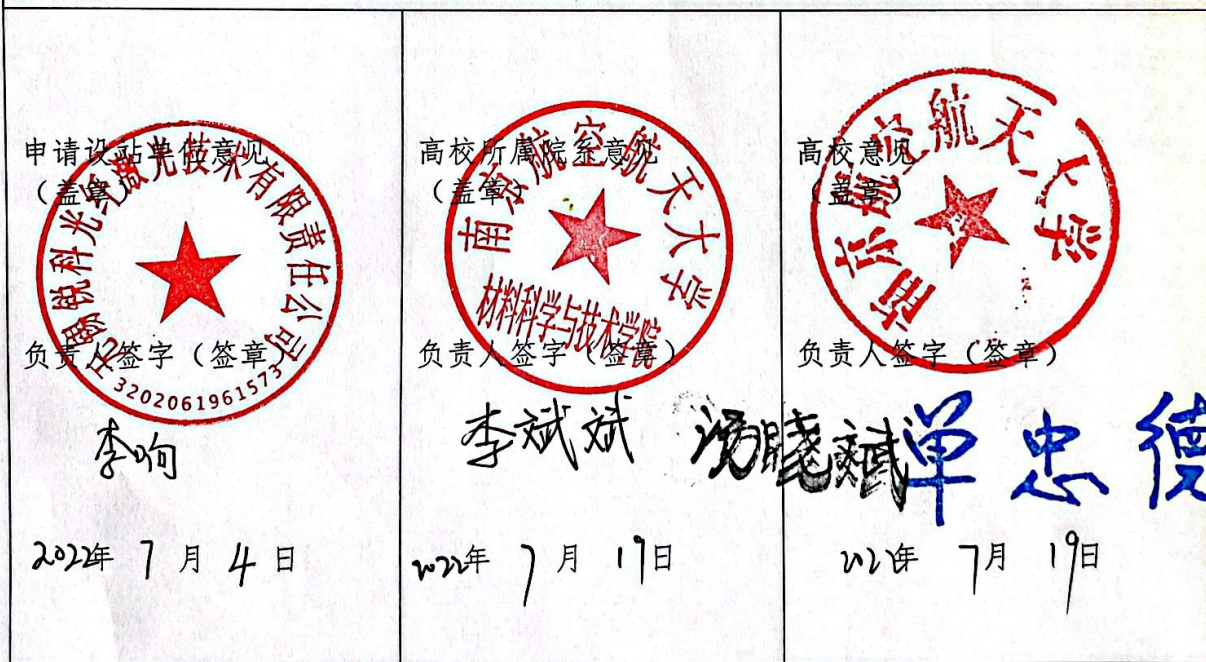 申请设站单位意见
（盖章）
无锡锐科光纤激光技术有限责任公司
3202061961573
负责人签字（签章）
李响
2022年 7 月 4 日
高校所属院系意见
（盖章）
南京航空航天大学
材料科学与技术学院
负责人签字（签章）
李斌斌 汤晓斌
2022年 7 月 19日
高校意见
（盖章）
南京航空航天大学
负责人签字（签章）
单忠德
2022年 7月 19日